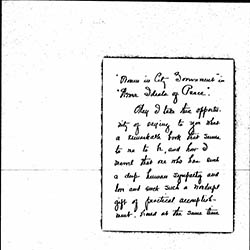 "Women in City Government" in
"Newer Ideals of Peace".
May I take this opportu-
nity of saying to you what
a remarkable book that seems
to me to be, and how I
marvel that one who has such
a deep human sympathy and
love and such a
gift of practical accomplish-
ment, should at the same time